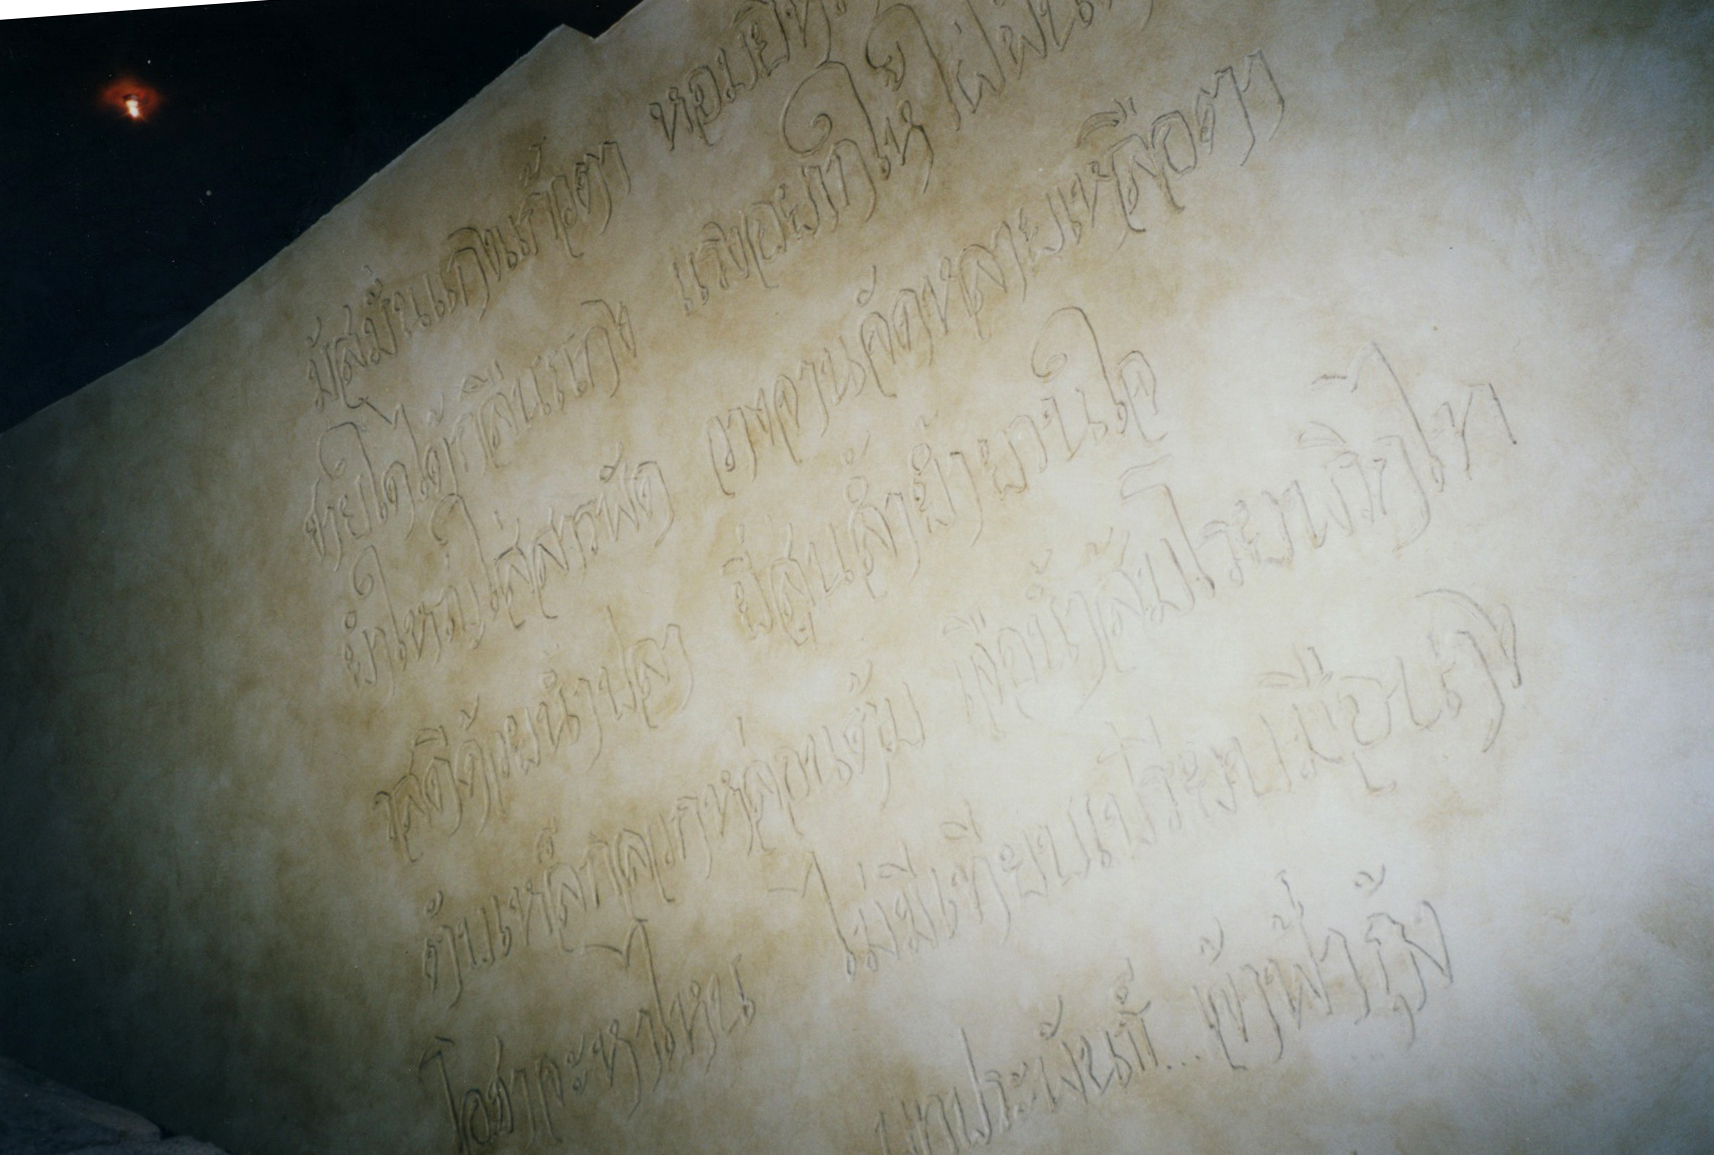 มัสมั่นแกงแก้วตา หอมยี่
ชายใดได้กลืนแกง แรงอยากให้ใฝ่ฝัน
ยำใหญ่ใส่สารพัด วางจานจัดหลายเหลือตรา
รสดีด้วยน้ำปลา ยี่สุ่นล้ำย้ำยวนใจ
ตับเหล็กลวกหล่อนต้ม เจือน้ำส้มโรยพริกไทย
โอชาจะหาไหน ไม่มีเทียบเปรียบมือนาง
บทประพันธ์...เจ้าฟ้ากุ้ง